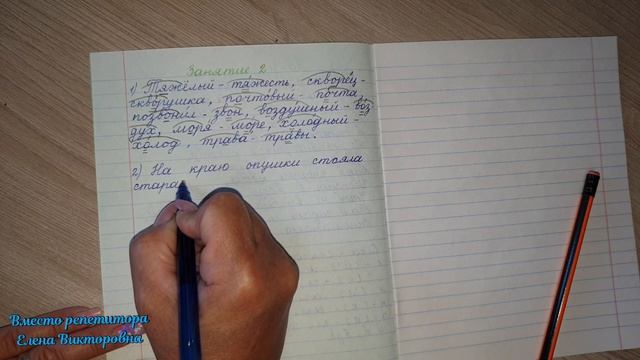 Занятие 2
1) Тяжёлый - тяжесть, скворец -
скворушка, почтовый - почта,
позвонил - звон, воздушный - воз
дух, моря - море, холодный -
холод, трава - травы.
2) На краю опушки стояла
стара
Вместо репетитора
Елена Викторовна